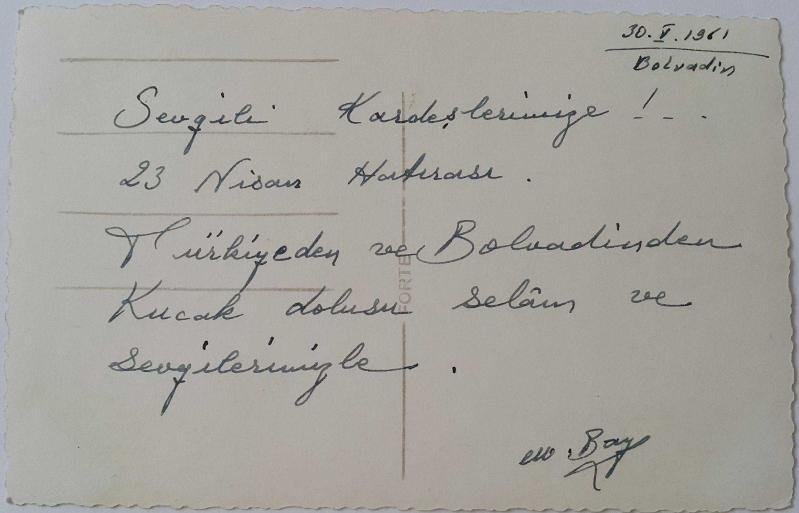 30.V.1961
Bolvadin
Sevgili Kardeşlerimize !...
23 Nisan Hatırası.
Türkiyeden ve Bolvadinden
Kucak dolusu selâm ve
Sevgilerimizle.
M. Bay
FORTE